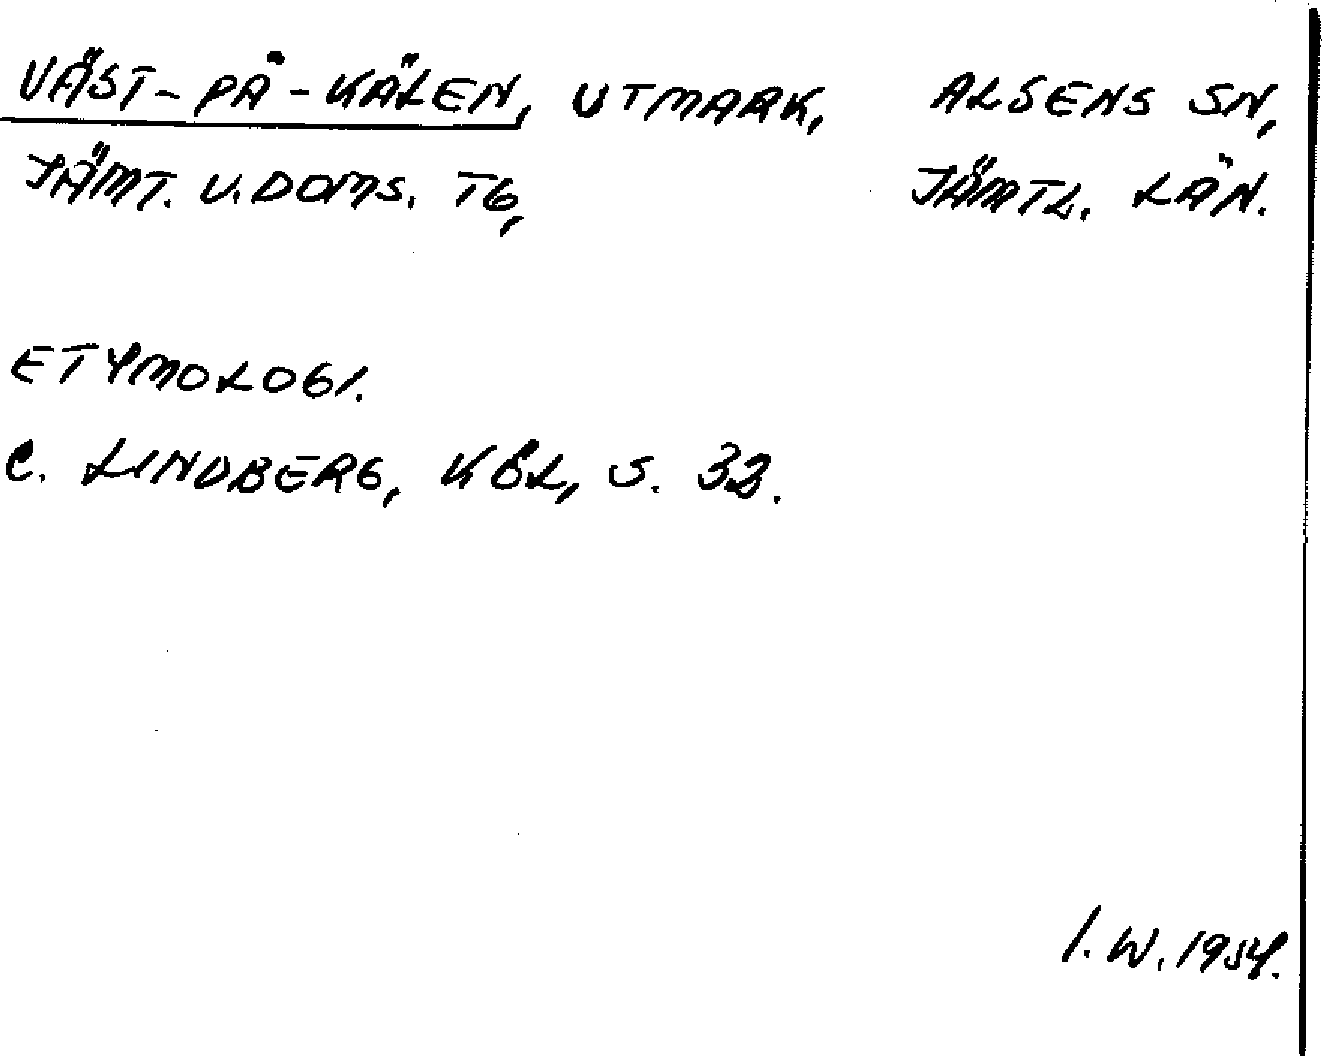 VÄST-PÅ-KÄLEN, UTMARK, ALSENS SN,
JÄMT. V. DOMS. TG, JÄMTL. LÄN.
ETYMOLOGI.
C. LINDBERG, KÖL, S. 32.
I. W. 1954.